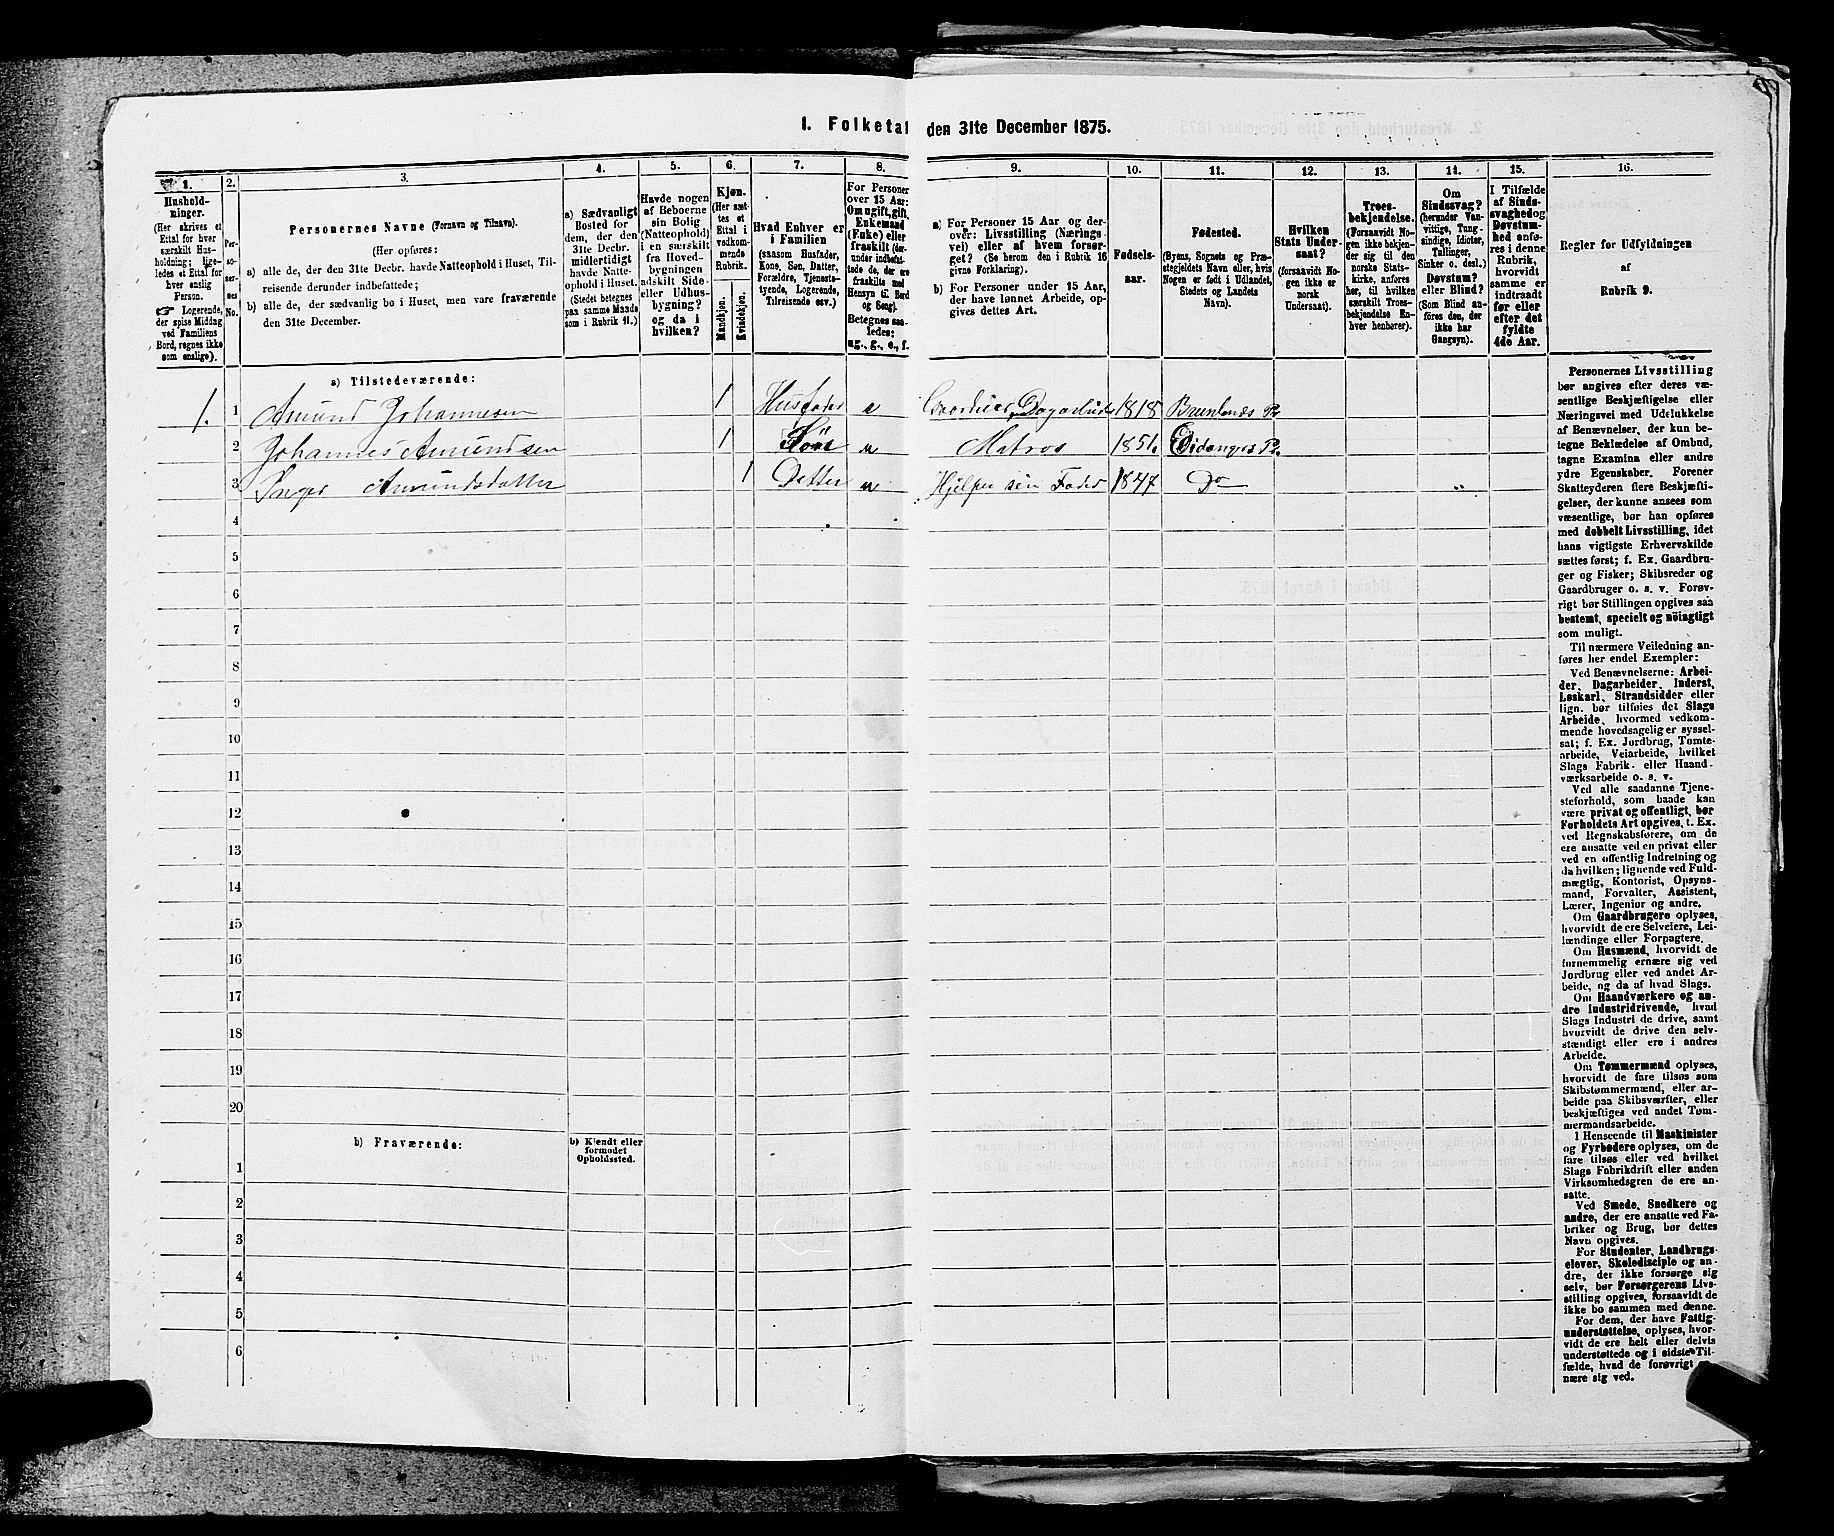 1. Folketal den 31te December 1875.
1.
Hushold-
ninger.
(Her skrives et
Ettal for hver
særskilt Hus-
holdning; lige-
ledes et Ettal for
hver enslig
Person.
☞ Logerende,
der spise Middag
ved Familiens
Bord, regnes ikke
som enslige).
2.
Per-
so-
ner-
nes
No.
3.
Personernes Navne (Fornavn og Tilnavn).
(Her opføres:
a) alle de, der den 31te Decbr. havde Natteophold i Huset, Til-
reisende derunder indbefattede;
b) alle de, der sædvanlig bo i Huset, men vare fraværende
den 31te December.
4.
a) Sædvanligt
Bosted for
dem, der den
31te Decbr.
midlertidigt
havde Natte-
ophold i Huset.
(Stedet betegnes
paa samme Maade
som i Rubrik 11.)
5.
Havde nogen
af Beboerne
sin Bolig
(Natteophold)
i en særskilt
fra Hoved-
bygningen
adskilt Side-
eller Udhus-
bygning?
og da i
hvilken?
6.
Kjøn.
(Her sæt-
tes et
Ettal i
vedkom-
mende
Rubrik.
Mandkjøn.
Kvindekjøn.
7.
Hvad Enhver er
i Familien
(saasom Husfader,
Kone, Søn, Datter,
Forældre, Tjeneste-
tyende, Logerende,
Tilreisende osv.)
8.
For Personer
over 15 Aar:
Om ugift, gift,
Enkemand
(Enke) eller
fraskilt (der-
under indbefat-
tede de, der ere
fraskilte med
Hensyn til Bord
og Seng).
Betegnes saa-
ledes:
ug., g., e., f.
9.
a) For Personer 15 Aar og der-
over: Livsstilling (Nærings-
vei) eller af hvem forsør-
get? (Se herom den i Rubrik 16
givne Forklaring).
b) For Personer under 15 Aar,
der have lønnet Arbeide, op-
gives dettes Art.
10.
Fødsels-
aar.
11.
Fødested.
(Byens, Sognets og Præ-
stegjeldets Navn eller, hvis
Nogen er født i Udlandet,
Stedets og Landets
Navn).
12.
Hvilken
Stats Under-
saat?
(forsaavidt No-
gen ikke er
norsk
Undersaat).
13.
Troes-
bekjendelse.
(Forsaavidt No-
gen ikke bekjen-
der sig til den
norske Stats-
kirke, anføres
her, til hvilken
særskilt Troes-
bekjendelse En-
hver henhører).
14.
Om
Sindssvag?
(herunder Van-
vittige, Tung-
sindige, Idioter,
Tullinger,
Sinker o. desl.)
Døvstum?
eller Blind?
(Som Blind an-
føres den, der
ikke har
Gangsyn).
15.
I Tilfælde
af Sinds-
svaghed og
Døvstum-
hed enfø-
res i denne
Rubrik,
hvorvidt
samme er
indtraadt
før eller
efter det
fyldte
4de Aar.
16.
Regler for Udfyldningen
af
Rubrik 9.
a) Tilstedeværende:
1. 1 Amund Johannesen 1 Husfader e Dagarbeider 1818 Brunlanæs Pr
2 Johannes Amundsen 1 Søn u Matros 1851. Eidangers Pr.
3 Inger Amundsdatter 1 Datter u Hjelper sin Fader 1847 Do "
4
5
6
7
8
9
10
11
12
13
14
15
16
17
18
19
20
b) Fraværende:
b) Kjendt eller
formodet
Opholdssted.
1
2
3
4
5
6
Personernes Livsstilling
bør angives efter deres væ-
sentlige Beskjæftigelse eller
Næringsvei med Udelukkelse
af Benævnelser, der kun be-
tegne Beklædelse af Ombud,
tagne Examina eller andre
ydre Egenskaber. Forener
Skatteyderen flere Beskjæfti-
gelser, der kunne ansees som
væsentlige, bør han opføres
med dobbelt Livsstilling, idet
hans vigtigste Erhvervskilde
sættes først; f. Ex. Gaardbru-
ger og Fisker; Skibsreder og
Gaardbruger o. s. v. Forøv-
rigt bør Stillingen opgives saa
bestemt, specielt og nöiagtigt
som muligt.
Til nærmere Veiledning an-
føres her endel Exempler:
Ved Benævnelserne: Arbei-
der, Dagarbeider, Inderst,
Løskarl, Strandsidder eller
lign. bør tilføies det Slags
Arbeide, hvormed vedkom-
mende hovedsagelig er syssel-
sat; f. Ex. Jordbrug, Tomte-
arbeide, Veiarbeide, hvilket
Slags Fabrik- eller Haand-
værksarbeide o. s. v.
Ved alle saadanne Tjene-
steforhold, som baade kan
være privat og offentligt, bør
Forholdets Art opgives, t. Ex.
ved Regnskabsførere, om de
ere ansatte ved en privat eller
ved en offentlig Indretning og
da hvilken; lignende ved Fuld-
mægtig, Kontorist, Opsyns-
mand, Forvalter, Assistent,
Lærer, Ingeniør og andre.
Om Gaardbrugere oplyses,
hvorvidt de ere Selveiere, Lei-
lændinge eller Forpagtere.
Om Husmænd, hvorvidt de
fornemmelig ernære sig ved
Jordbrug eller ved andet Ar-
beide, og da af hvad Slags.
Om Haandværkere og an-
dre Industridrivende, hvad
Slags Industri de drive, samt
hvorvidt de drive den selv-
stændigt eller ere i andres
Arbeide.
Om Tømmermænd oplyses,
hvorvidt de fare tilsøs som
Skibstømmermænd, eller ar-
beide paa Skibsværfter, eller
beskjæftiges ved andet Tøm-
mermandsarbeide.
I Henseende til Maskinister
og Fyrbødere oplyses, om de
fare tilsøs eller ved hvilket
Slags Fabrikdrift eller anden
Virksomhedsgren de ere an-
satte.
Ved Smede, Snedkere og
andre, der ere ansatte ved Fa-
briker og Brug, bør dettes
Navn opgives.
For Studenter, Landbrugs-
elever, Skoledisciple og an-
dre, der ikke forsørge sig
selv, bør Forsørgerens Livs-
stilling opgives, forsaavidt de
ikke bo sammen med denne.
For dem, der have Fattig-
understøttelse, oplyses, hvor-
vidt de ere helt eller delvis
understøttede og i sidste Til-
fælde, hvad de forøvrigt er-
nære sig ved.